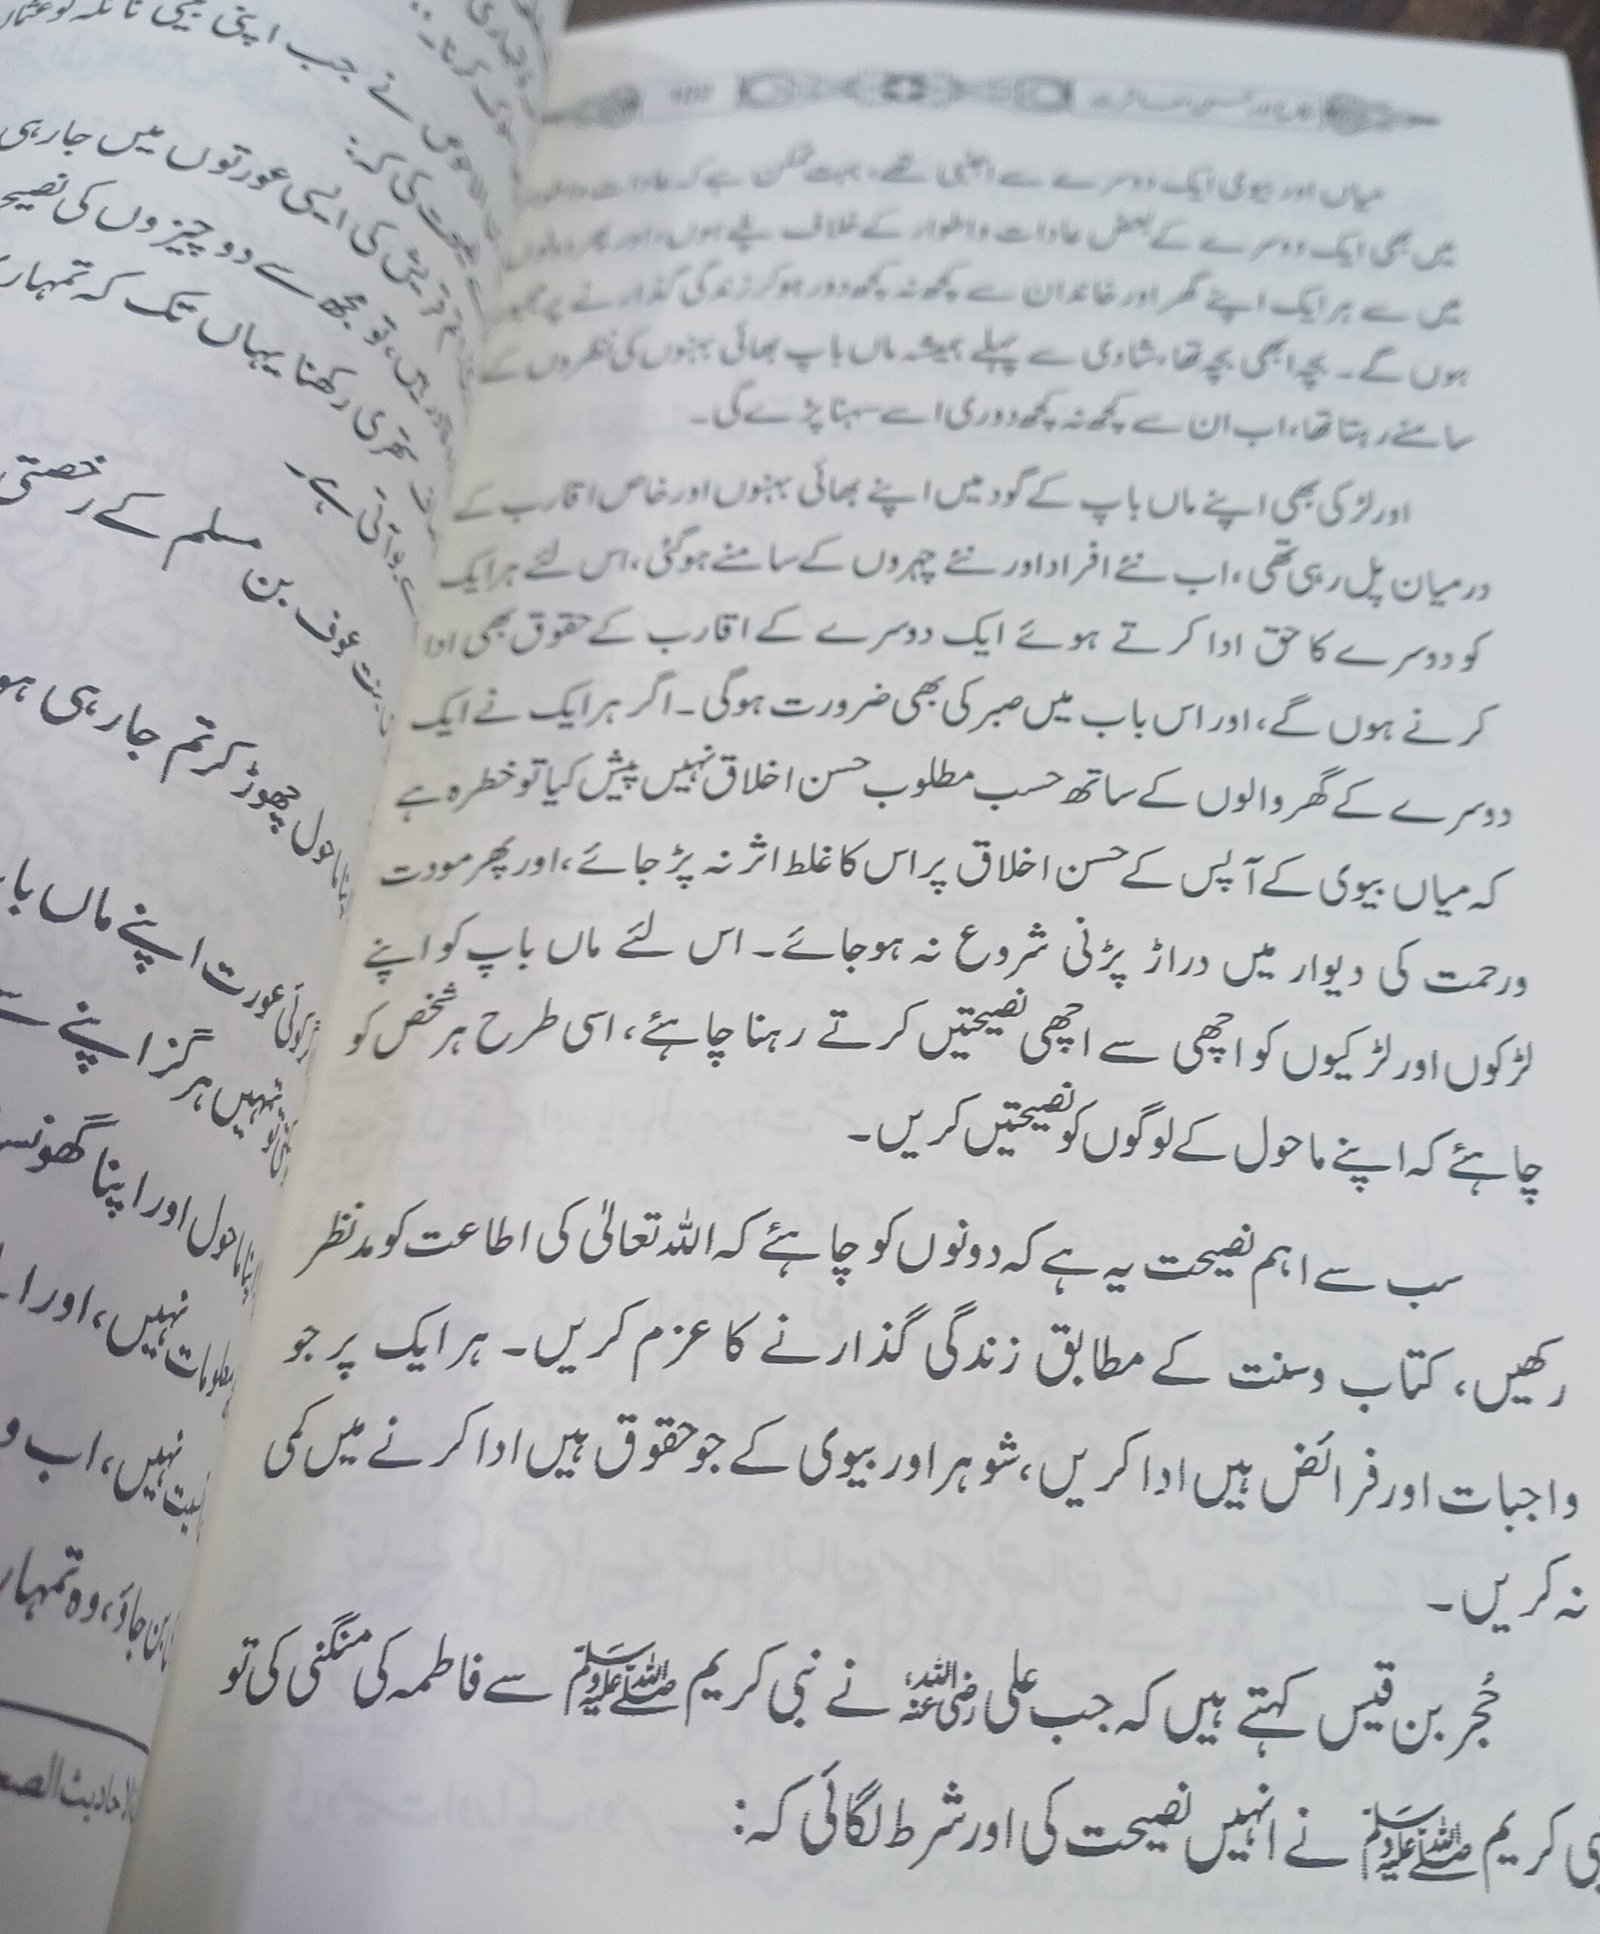 میاں اور بیوی ایک دوسرے سے اجنبی تھے، بہت ممکن ہے کہ عادات و اطوار
میں بھی ایک دوسرے کے بعض عادات و اطوار کے خلاف پلے ہوں، اور پھر دونوں
میں سے ہر ایک اپنے گھر اور خاندان سے کچھ نہ کچھ دور ہو کر زندگی گذارنے پر مجبور
ہوں گے۔ بچہ ابھی بچہ تھا، شادی سے پہلے ہمیشہ ماں باپ بھائی بہنوں کی نظروں کے
سامنے رہتا تھا، اب ان سے کچھ نہ کچھ دوری اسے سہنا پڑے گی۔
اور لڑکی بھی اپنے ماں باپ کے گود میں اپنے بھائی بہنوں اور خاص اقارب کے
درمیان پل رہی تھی، اب نئے افراد اور نئے چہروں کے سامنے ہوگئی، اس لئے ہر ایک
کو دوسرے کا حق ادا کرتے ہوئے ایک دوسرے کے اقارب کے حقوق بھی ادا
کرنے ہوں گے، اور اس باب میں صبر کی بھی ضرورت ہوگی۔ اگر ہر ایک نے ایک
دوسرے کے گھر والوں کے ساتھ حسب مطلوب حسن اخلاق نہیں پیش کیا تو خطرہ ہے
کہ میاں بیوی کے آپس کے حسن اخلاق پر اس کا غلط اثر نہ پڑ جائے، اور پھر مودت
ورحمت کی دیوار میں دراڑ پڑنی شروع نہ ہوجائے۔ اس لئے ماں باپ کو اپنے
لڑکوں اور لڑکیوں کو اچھی سے اچھی نصیحتیں کرتے رہنا چاہئے، اسی طرح ہر شخص کو
چاہئے کہ اپنے ماحول کے لوگوں کو نصیحتیں کریں۔
سب سے اہم نصیحت یہ ہے کہ دونوں کو چاہئے کہ اللہ تعالیٰ کی اطاعت کو مدنظر
رکھیں، کتاب وسنت کے مطابق زندگی گذارنے کا عزم کریں۔ ہر ایک پر جو
واجبات اور فرائض ہیں ادا کریں، شوہر اور بیوی کے جو حقوق ہیں ادا کرنے میں کمی
نہ کریں۔
حُجر بن قیس کہتے ہیں کہ جب علی رضی اللہ عنہ نے نبی کریم ﷺ سے فاطمہ کی منگنی کی تو
کریم ﷺ نے انہیں نصیحت کی اور شرط لگائی کہ:
نے جب اپنی
قریش کی ایسی عورتوں میں جا رہی
تو مجھ سے دو چیزوں کی
رکھنا یہاں تک کہ
ہے۔
بنت عوف بن مسلم کے رخصتی
ماحول چھوڑ کر تم جا رہی
کوئی عورت اپنے ماں
تمہیں ہرگز اپنے
ماحول اور اپنا
نہیں، اور
نہیں، اب
بن جاؤ، وہ